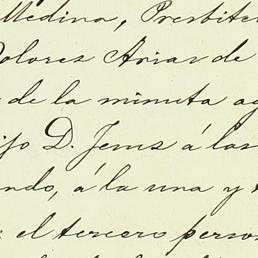 Medina, Presbíte
Dolores Arias de
de la minuta ag
ijo D. Jesus á las
ndo, á la una y
el tercero person